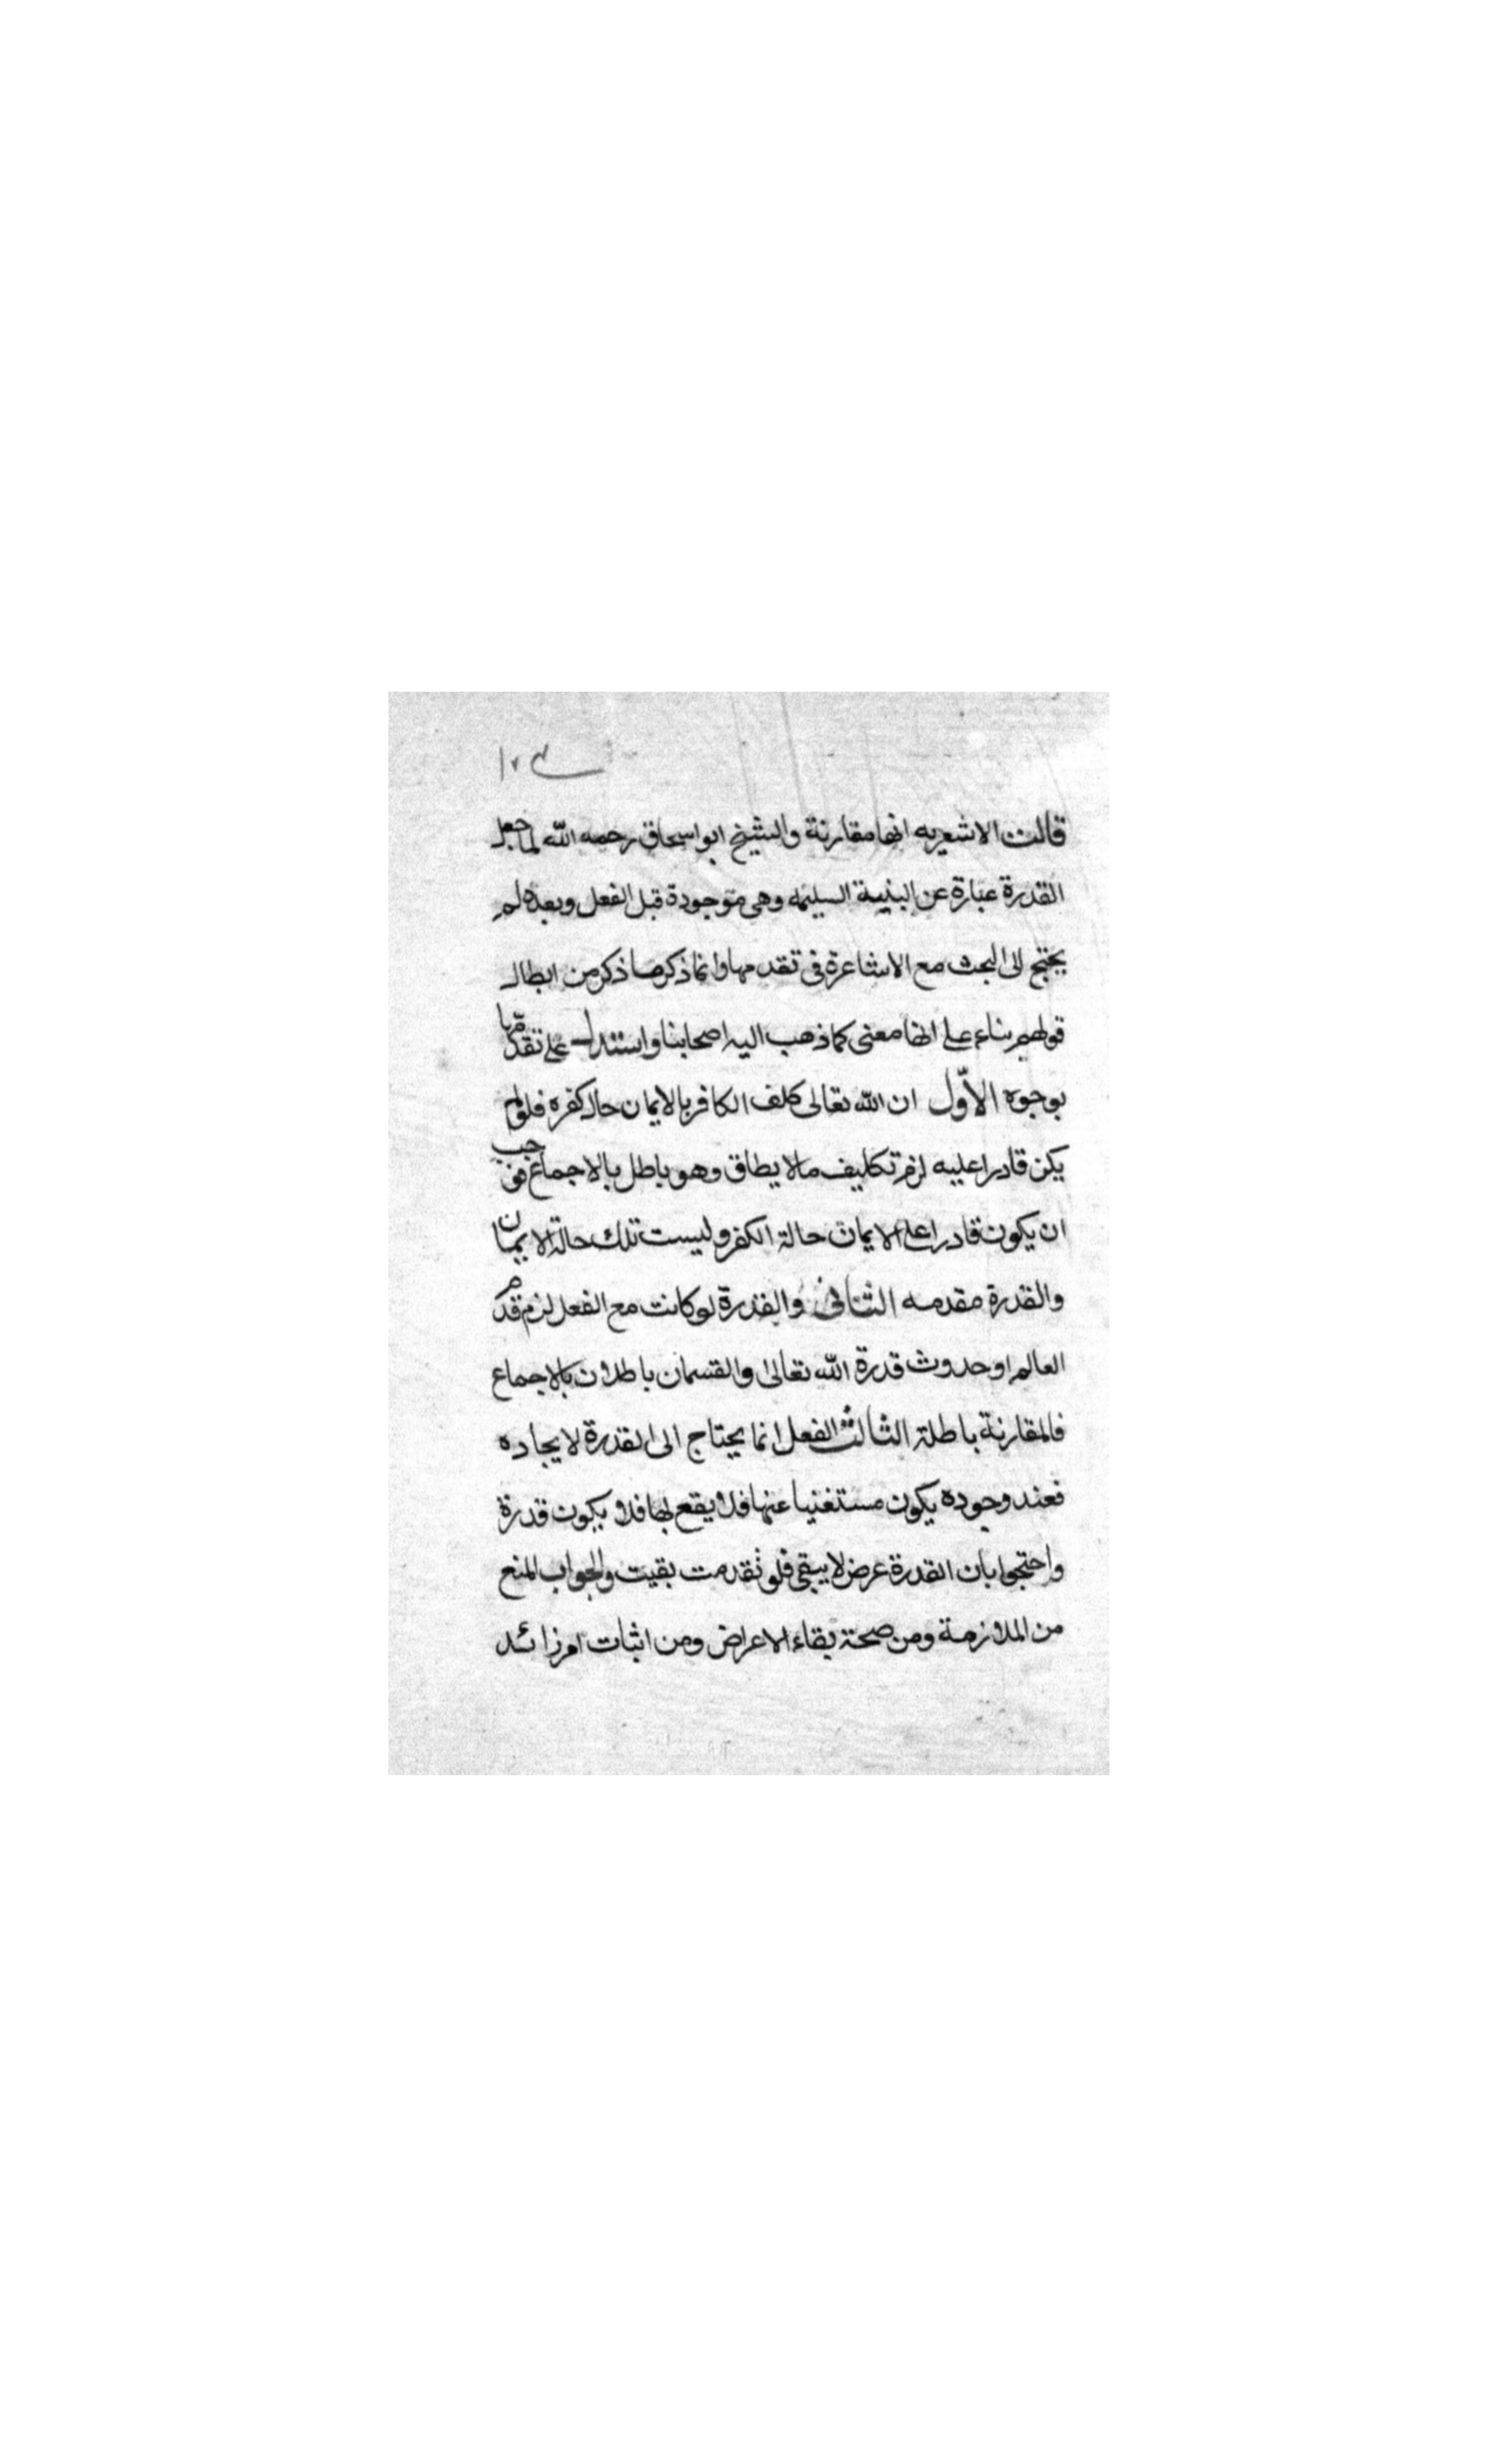 قالت الاشعريه انها مقارنة والشيخ ابو اسحاق رحمه الله لما جعل
القدرة عبارة عن البنية السليمه وهى موجودة قبل الفعل وبعده لم
يحتج الى البحث مع الاشاعرة فى تقدمها وانما ذكر ما ذكر من ابطال
قولهم بناء على انها معنى كما ذهب اليه اصحابنا واستدل على تقدمها
بوجوه الاوّل ان الله تعالى كلف الكافر بالايمان حال كفره فلو لم
يكن قادرا عليه لزم تكليف ما لا يطاق وهو باطل بالاجماع فوجب
ان يكون قادرا على الايمان حالة الكفر وليست تلك حالة الايمان
والقدرة مقدمه الثانى والقدرة لو كانت مع الفعل لزم قدم
العالم او حدوث قدرة الله تعالى والقسمان باطلان بالاجماع
فالمقارنة باطلة الثالث الفعل انما يحتاج الى القدرة لايجاده
فعند وجوده يكون مستغنيا عنها فلا يقع بها فلا يكون قدرة
واحتجوا بان القدرة عرض لا يبقى فلو تقدمت بقيت والجواب المنع
من الملازمة ومن صحة بقاء الاعراض ومن اثبات امر زائد